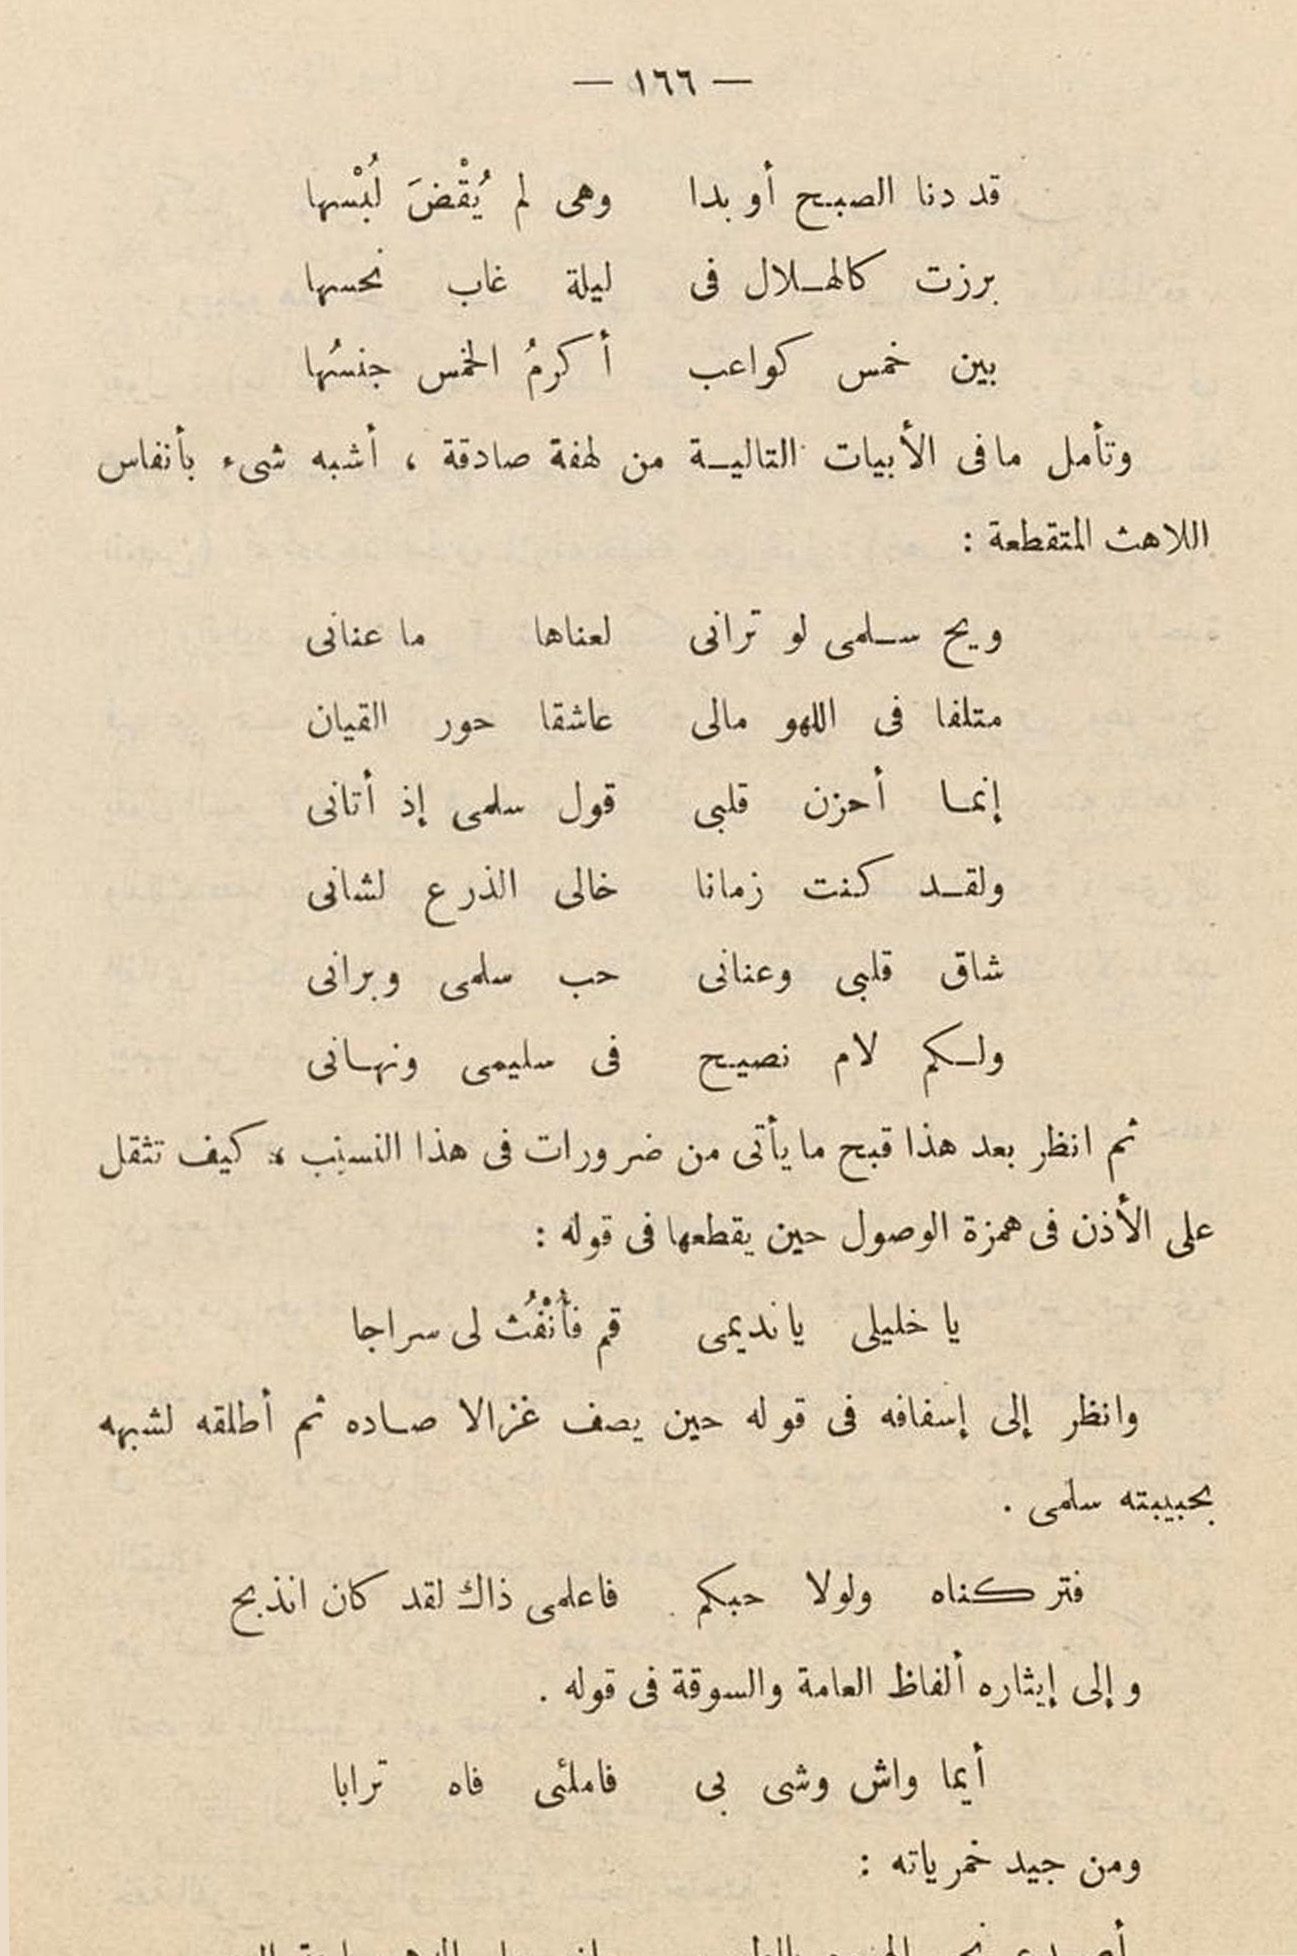 — ١٦٦ —
قد دنا الصبح أو بدا وهى لم يُقْضَ لُبْسها
برزت كالهلال فى ليلة غاب نحسها
بين خمس كواعب أكرمُ الخمس جنسُها
وتأمل مافى الأبيات التالية من لهفة صادقة ، أشبه شىء بأنفاس
اللاهث المتقطعة :
ويح سلمى لو ترانى لعناها ما عنانى
متلفا فى اللهو مالى عاشقا حور القيان
إنما أحزن قلبى قول سلمى إذ أتانى
ولقد كنت زمانا خالى الذرع لشانى
شاق قلبى وعنانى حب سلمى وبرانى
ولكم لام نصيح فى سليمى ونهانى
ثم انظر بعد هذا قبح مايأتى من ضرورات فى هذا النسيب ، كيف تثقل
على الأذن فى همزة الوصول حين يقطعها فى قوله :
يا خليلى يانديمى قم فأُنْفُث لى سراجا
وانظر إلى إسفافه فى قوله حين يصف غزالا صاده ثم أطلقه لشبهه
بحبيبته سلمى .
فتركناه ولولا حبكم فاعلمى ذاك لقد كان انذبح
وإلى إيثاره ألفاظ العامة والسوقة فى قوله .
أيما واش وشى بى فاملئى فاه ترابا
ومن جيد خمرياته :